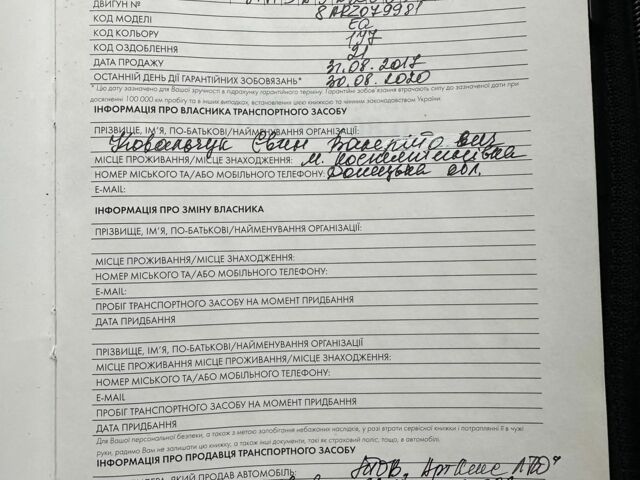 ДВИГУН №
8ARZ079981
КОД МОДЕЛІ EQ
КОД КОЛЬОРУ 1У7
КОД ОЗДОБЛЕННЯ 21
ДАТА ПРОДАЖУ 31.08.2017
ОСТАННІЙ ДЕНЬ ДІЇ ГАРАНТІЙНИХ ЗОБОВ'ЯЗАНЬ* 30.08.2020
* Цю дату зазначено для Вашої зручності в підрахунку гарантійного терміну. Гарантійні зобов'язання втрачають силу до зазначеної дати при
досягненні 100 000 км пробігу та в інших випадках, встановлених цією книжкою та чинним законодавством України.
ІНФОРМАЦІЯ ПРО ВЛАСНИКА ТРАНСПОРТНОГО ЗАСОБУ
ПРІЗВИЩЕ, ІМ'Я, ПО-БАТЬКОВІ/НАЙМЕНУВАННЯ ОРГАНІЗАЦІЇ:
Ковальчук Євген Валерійович
МІСЦЕ ПРОЖИВАННЯ/МІСЦЕ ЗНАХОДЖЕННЯ: м. Костянтинівка
НОМЕР МІСЬКОГО ТА/АБО МОБІЛЬНОГО ТЕЛЕФОНУ: Донецька обл.
E-MAIL:
ІНФОРМАЦІЯ ПРО ЗМІНУ ВЛАСНИКА
ПРІЗВИЩЕ, ІМ'Я, ПО-БАТЬКОВІ/НАЙМЕНУВАННЯ ОРГАНІЗАЦІЇ:
МІСЦЕ ПРОЖИВАННЯ/МІСЦЕ ЗНАХОДЖЕННЯ:
НОМЕР МІСЬКОГО ТА/АБО МОБІЛЬНОГО ТЕЛЕФОНУ:
E-MAIL:
ПРОБІГ ТРАНСПОРТНОГО ЗАСОБУ НА МОМЕНТ ПРИДБАННЯ
ДАТА ПРИДБАННЯ
ПРІЗВИЩЕ, ІМ'Я, ПО-БАТЬКОВІ/НАЙМЕНУВАННЯ ОРГАНІЗАЦІЇ
МІСЦЕ ПРОЖИВАННЯ МІСЦЕ ПРОЖИВАННЯ/МІСЦЕ ЗНАХОДЖЕННЯ:
НОМЕР МІСЬКОГО ТА/АБО МОБІЛЬНОГО ТЕЛЕФОНУ:
E-MAIL
ПРОБІГ ТРАНСПОРТНОГО ЗАСОБУ НА МОМЕНТ ПРИДБАННЯ
ДАТА ПРИДБАННЯ
Для Вашої персональної безпеки, а також з метою запобігання небажаних наслідків, у разі втрати сервісної книжки і потраплянні її в чужі
руки, радимо Вам не залишати цю книжку, а також інші документи, такі як страховий поліс, тощо, в автомобілі.
ІНФОРМАЦІЯ ПРО ПРОДАВЦЯ ТРАНСПОРТНОГО ЗАСОБУ
ЯКИЙ ПРОДАВ АВТОМОБІЛЬ: